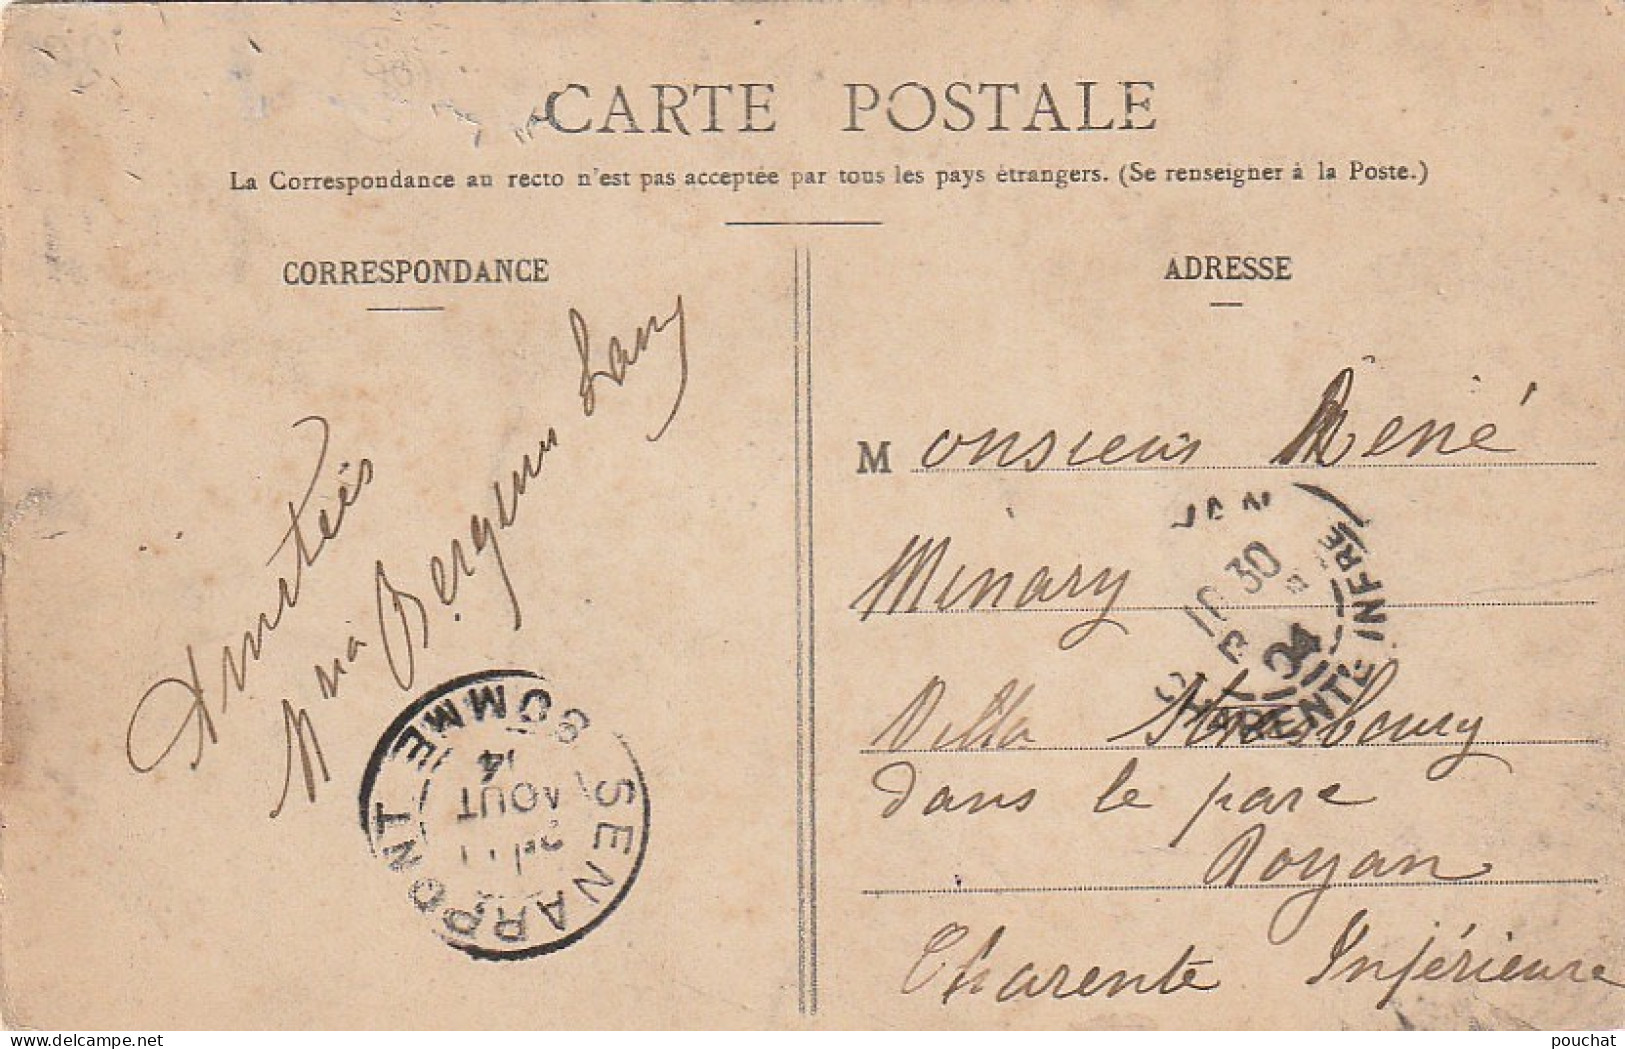 CARTE POSTALE
La Correspondance au recto n'est pas acceptée par tous les pays étrangers. (Se renseigner à la Poste.)
CORRESPONDANCE
Amitiés
ADRESSE
Monsieur René
Minary
Villa Strasbourg
dans le parc
Royan
Charente Inférieure
10 30
04
CHARENTE INFRE
SENARPONT SOMME
AOUT
delcampe.net
pouchat